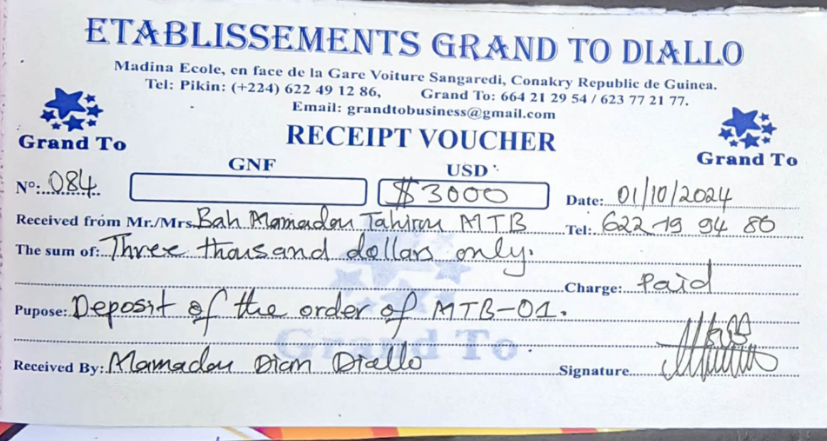 ETABLISSEMENTS GRAND TO DIALLO
Madina Ecole, en face de la Gare Voiture Sangaredi, Conakry Republic de Guinea.
Tel: Pikin: (+224) 622 49 12 86, Grand To: 664 21 29 54 / 623 77 21 77.
Email: grandtobusiness@gmail.com
Grand To
RECEIPT VOUCHER
Grand To
GNF USD
N°: 084 $3000 Date: 01/10/2024
Received from Mr./Mrs. Bah Mamadou Tahirou MTB Tel: 622 19 94 80
The sum of: Three thousand dollars only.
Charge: Paid
Pupose: Deposit of the order of MTB-01.
Grand To
Received By: Mamadou Dian Diallo Signature